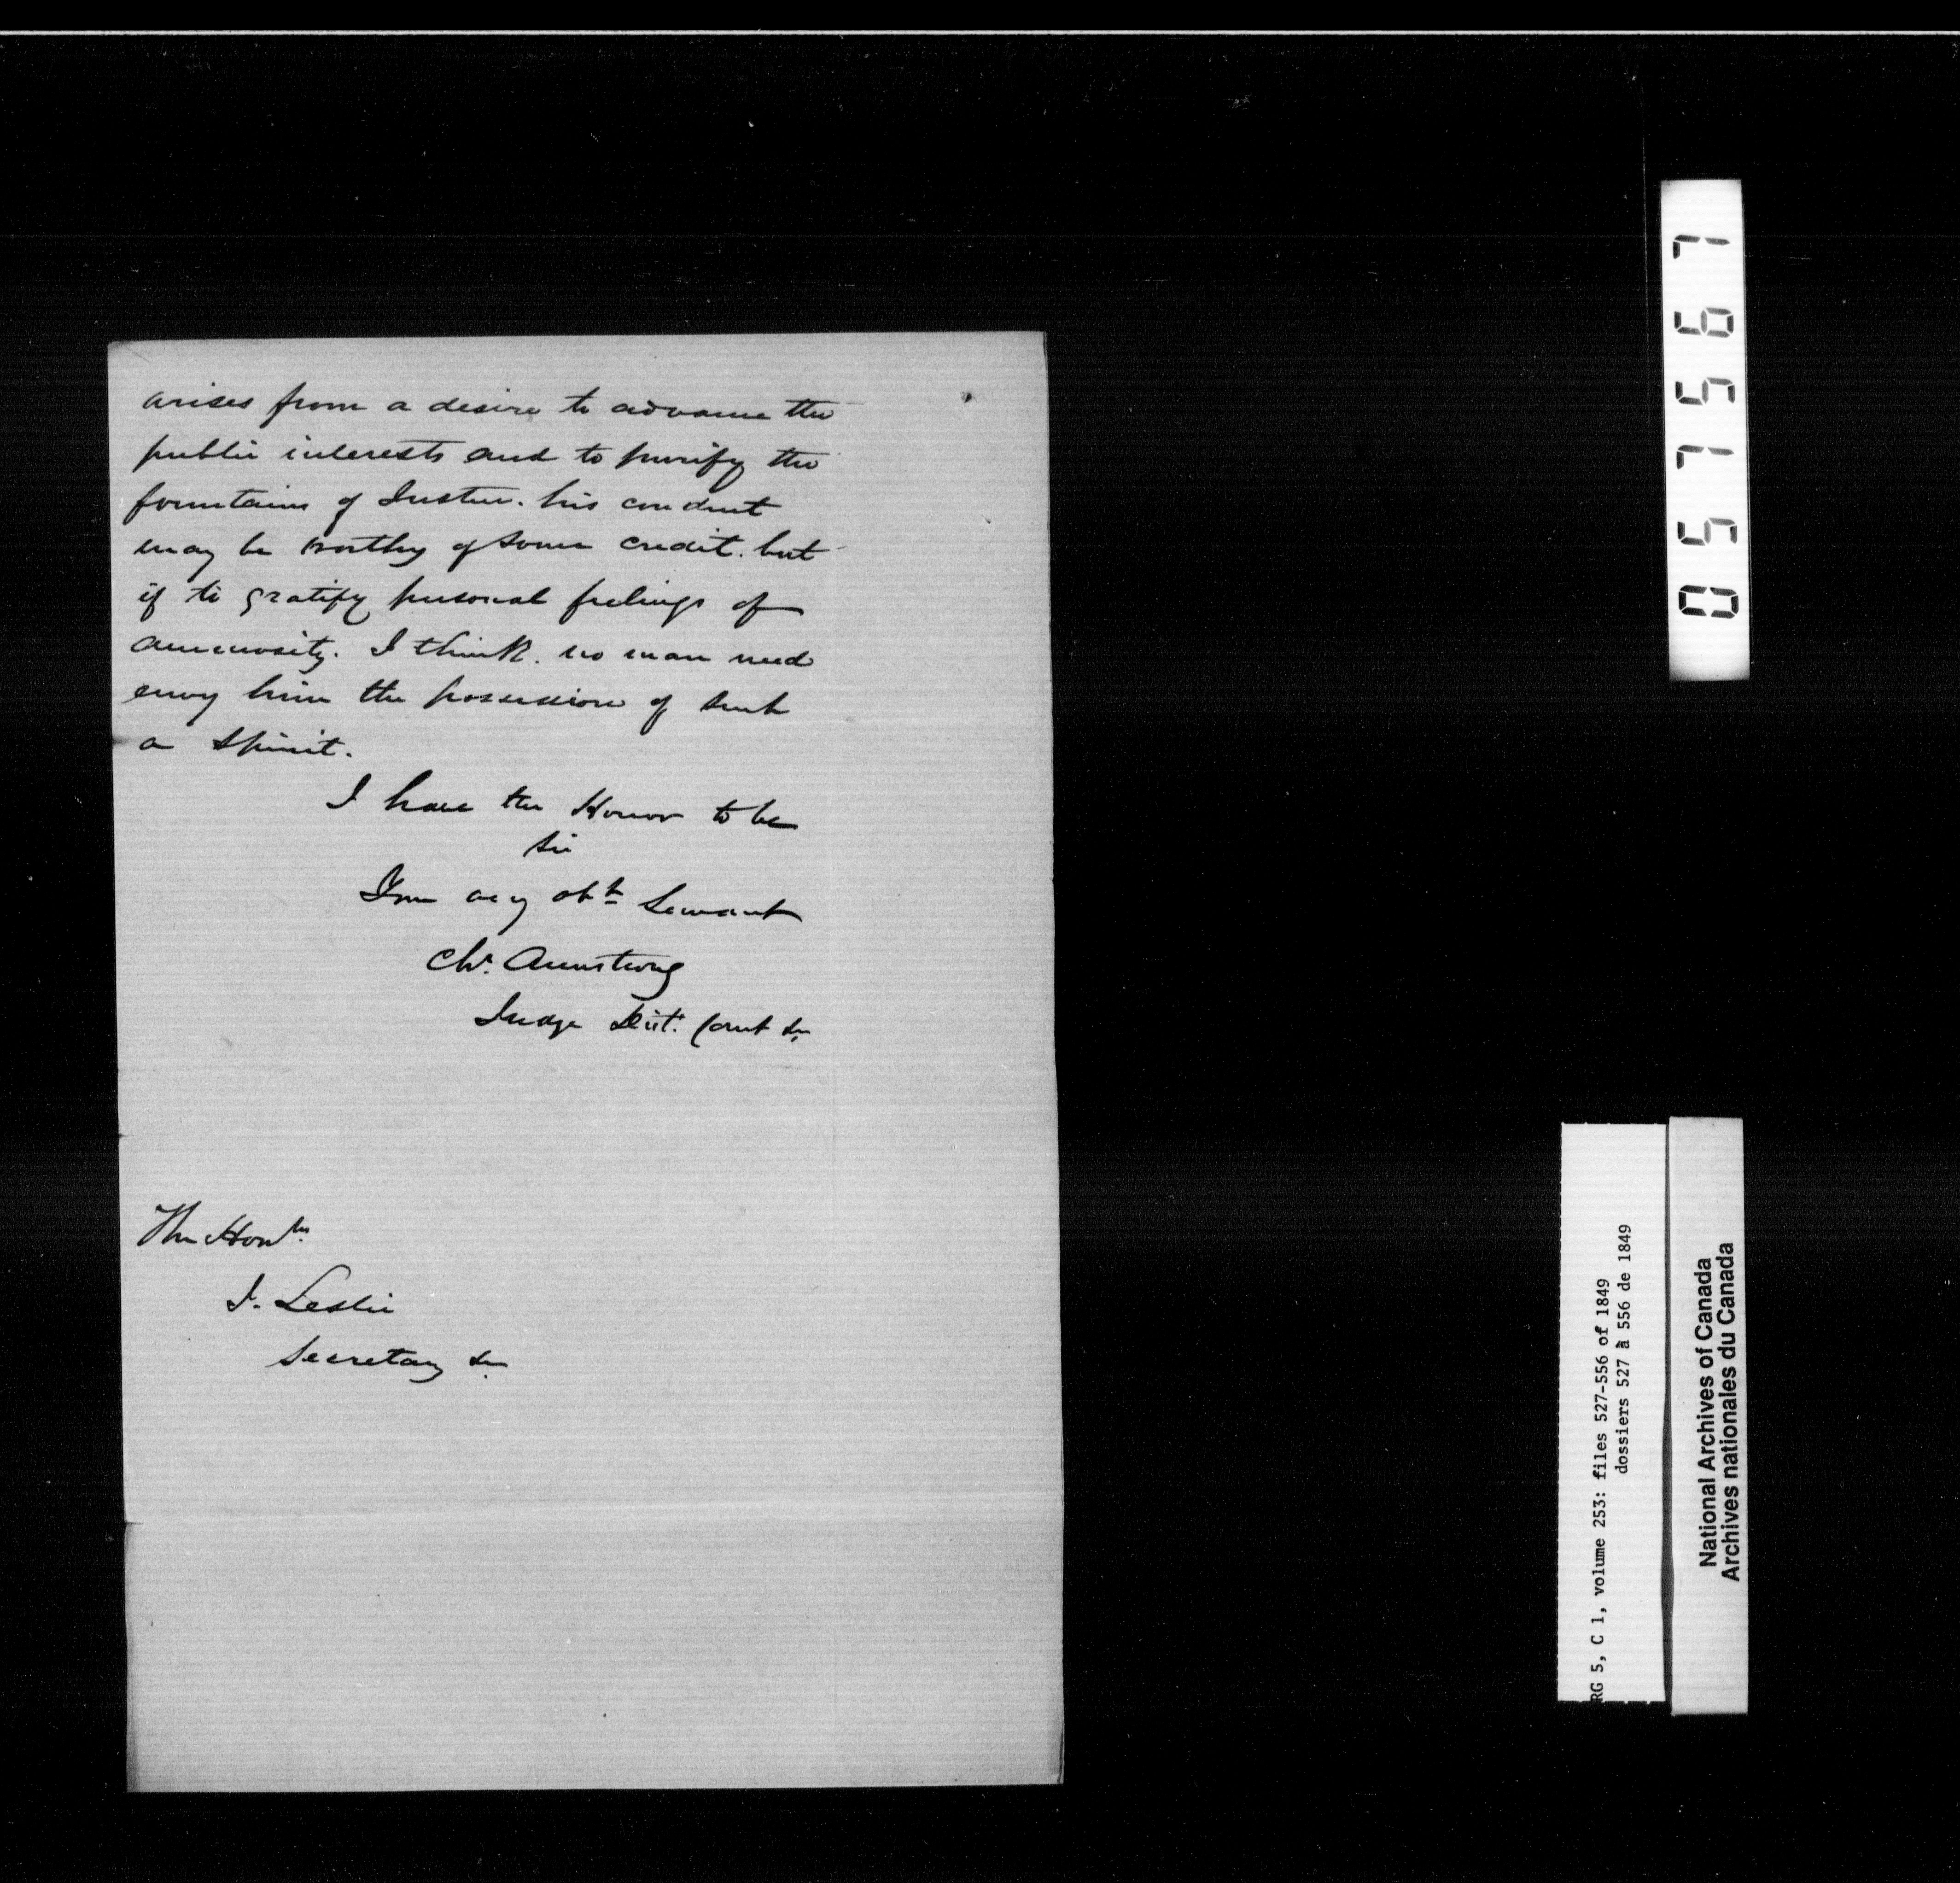 arises from a desire to advance the
public interests and to purify the
fountains of Justice. his conduct
may be worthy of some credit. but
if to gratify personal feelings of
animosity. I think. no man need
envy him the possession of such
a spirit.
I have the Honor to be
Sir
Your very obt Servant
Chs. Armstrong
Judge Dist. Court &c
The Honble
J. Leslie
Secretary &c
057567
RG 5, C 1, volume 253: files 527-556 of 1849
dossiers 527 à 556 de 1849
National Archives of Canada
Archives nationales du Canada